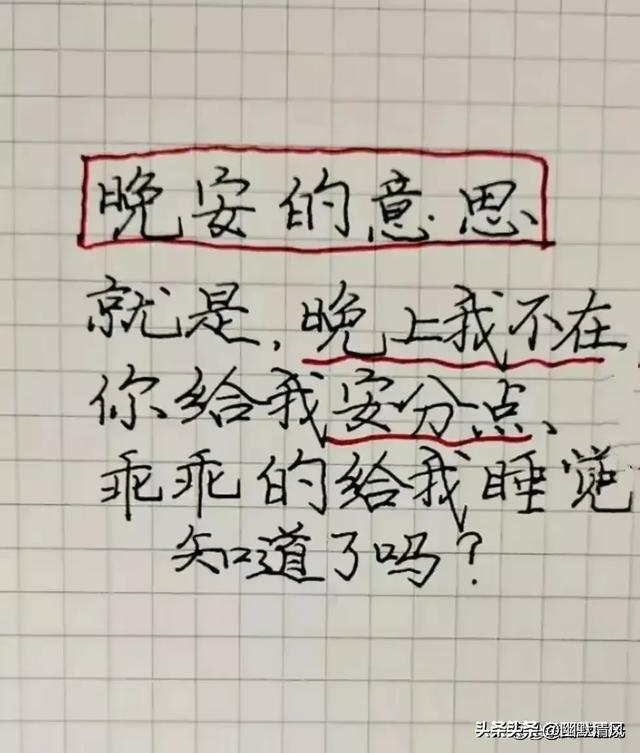 晚安的意思
就是,晚上我不在
你给我安分点、
乖乖的给我睡觉
知道了吗?
头条头条@幽默清风